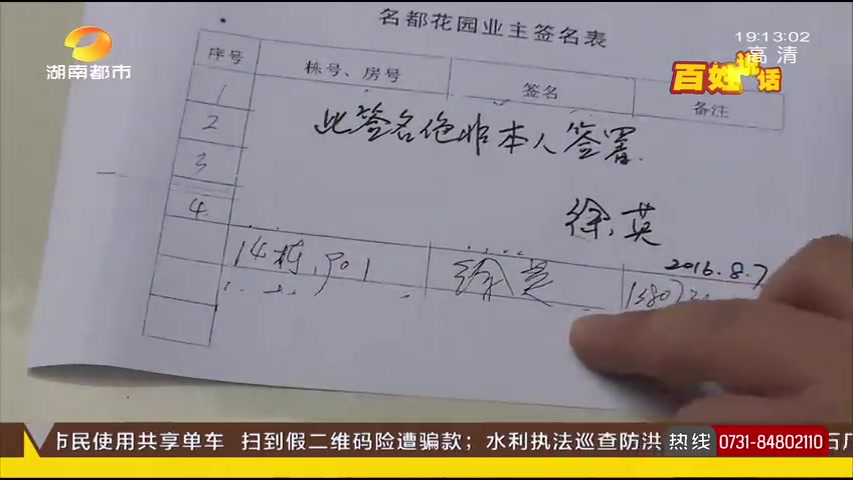 名都花园业主签名表
19:13:02
高清
湖南都市
百姓说话
序号
栋号、房号
签名
备注
1
2
3
4
此签名绝非本人签署.
徐英
2016.8.7
14栋
徐英
市民使用共享单车 扫到假二维码险遭骗款；水利执法巡查防洪
热线 0731-84802110